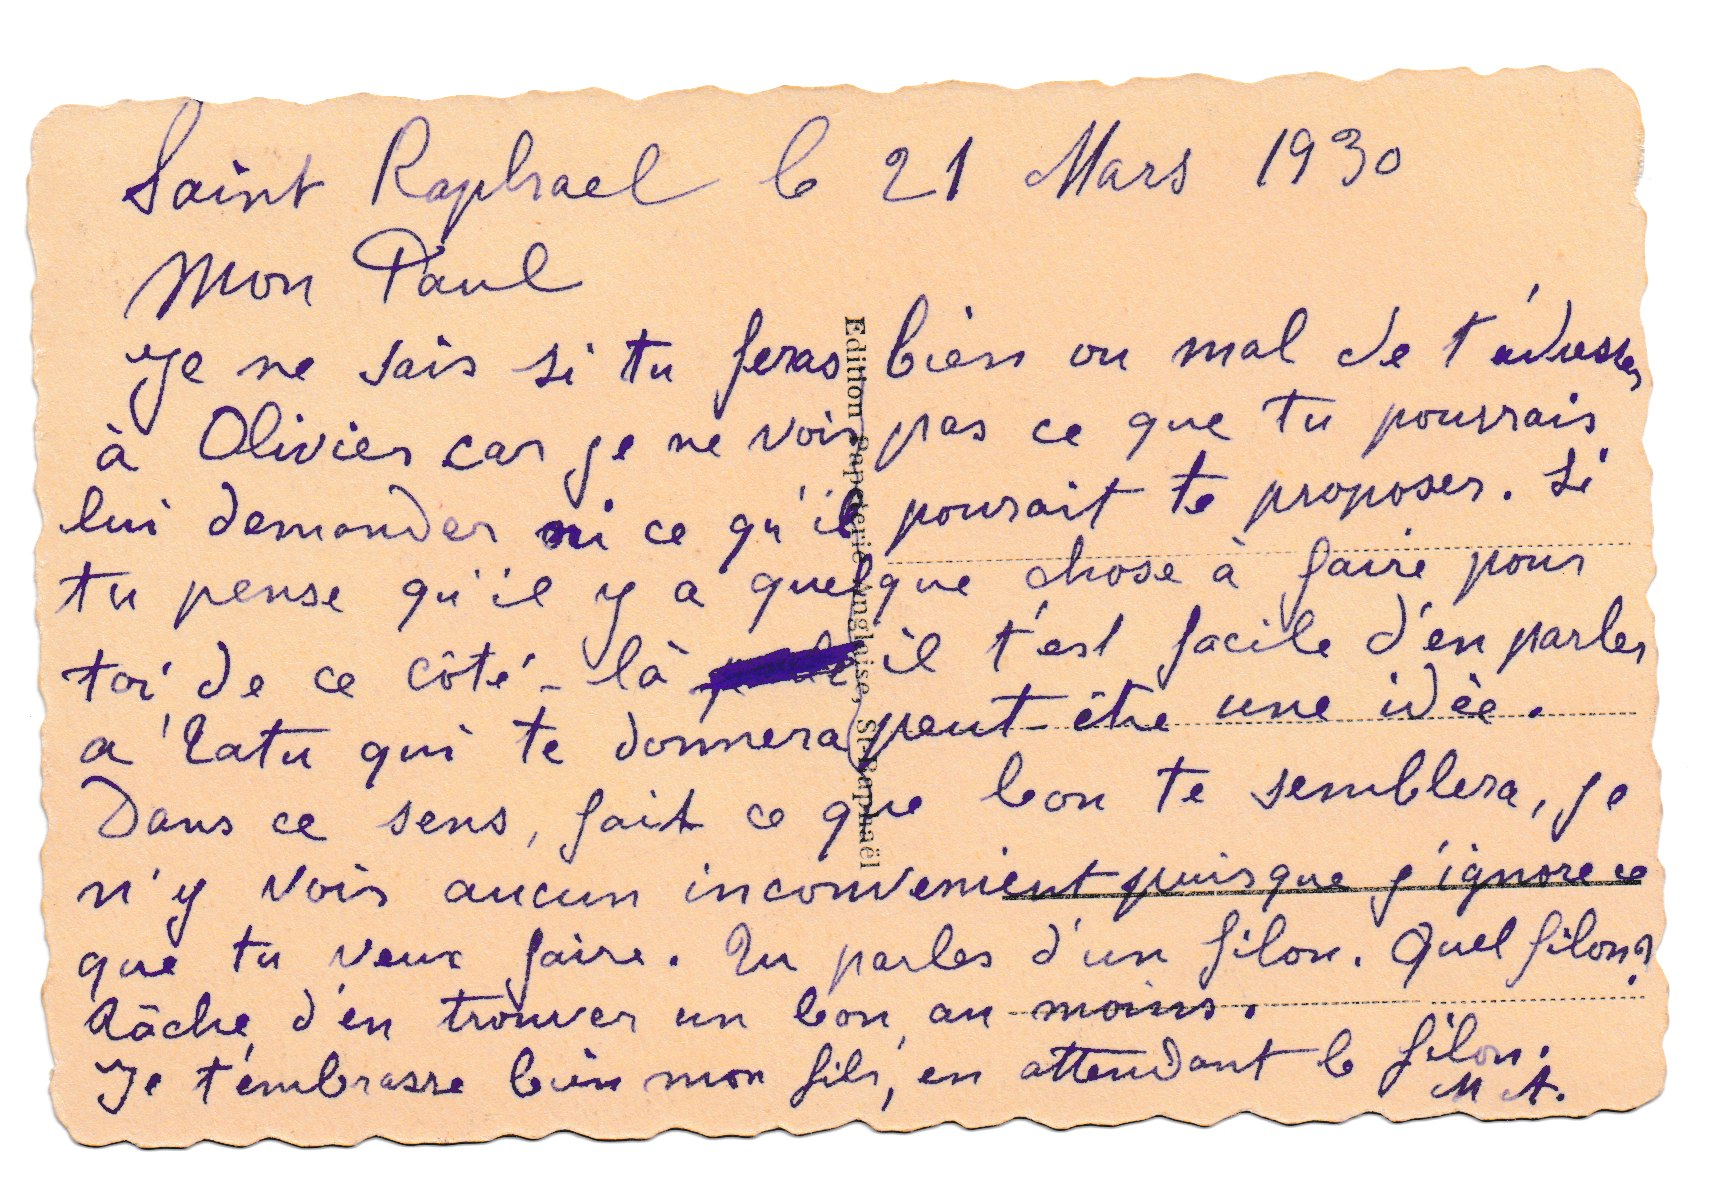 Saint Raphael le 21 Mars 1930
Mon Paul
Je ne sais si tu feras bien ou mal de t'adresser
à Olivier car je ne vois pas ce que tu pourrais
lui demander ni ce qu'il pourait te proposer. Si
tu pense qu'il y a quelque chose à faire pour
toi de ce côté-là il t'est facile d'en parler
a Ratu qui te donnera peut-être une idée.
Dans ce sens, fait ce que bon te semblera, je
n'y vois aucun inconvenient puisque j'ignore ce
que tu veux faire. Tu parles d'un filon. Quel filon?
Tâche d'en trouver un bon au moins.
Je t'embrasse bien mon fils, en attendant le filon.
M A.
Edition Papeterie Anglaise, St-Raphaël